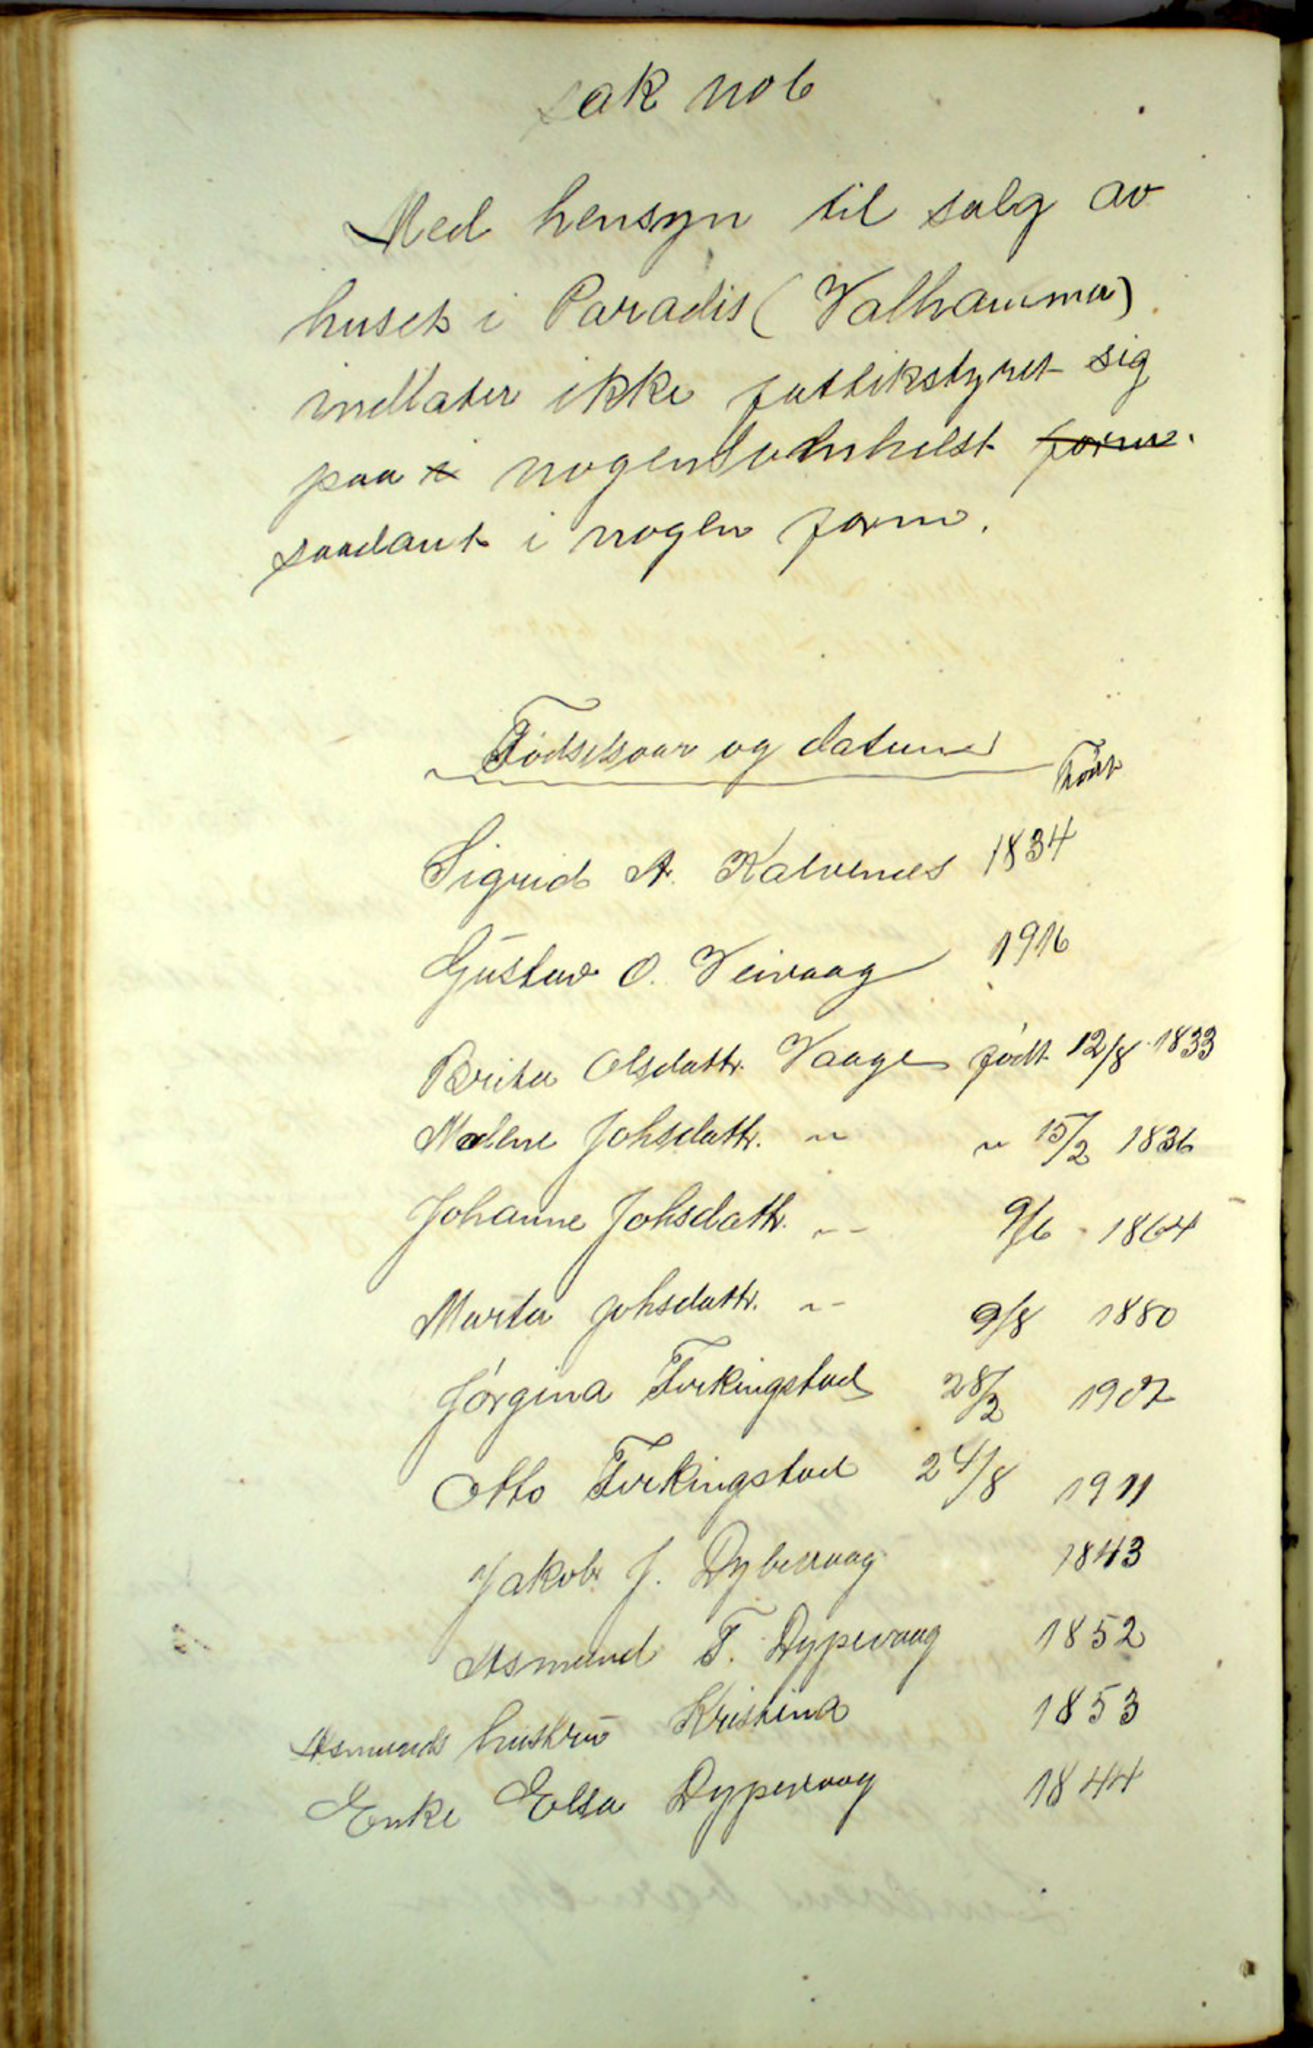 sak no 6
Med hensyn til salg av
huset i Paradis (Valhammer)
indlater ikke fattikstyret sig
paa i nogensomhelst form.
saadant i nogen form.
Fødselsaar og datum
Født
Sigrid A. Kalvenes 1834
Gustav O. Veivaag 1916
Brita Olsdattr. Vaage født 12/8 1833
Malene Johsdattr. " " 15/2 1836
Johanne Johsdattr. " 9/6 - 1864
Marta Johsdattr. " 9/8 1880
Jørgina Ferkingstad 28/2 1907
Otto Ferkingstad 24/8 1911
Jakob J. Dybevaag 1843
Asmund T. Dypevaag 1852
Asmunds hustru Kristina 1853
Enke Elsa Dypevaag 1844